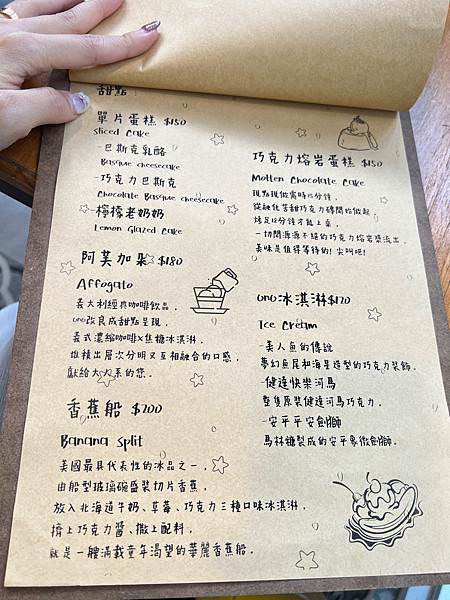 甜點
單片蛋糕 $150
Sliced Cake
-巴斯克乳酪
Basque cheesecake
-巧克力巴斯克
Chocolate Basque cheesecake
-檸檬老奶奶
Lemon Glazed Cake
阿芙加朵 $180
Affogato
義大利經典咖啡飲品，
ono改良成甜點呈現，
義式濃縮咖啡x焦糖冰淇淋，
堆積出層次分明又互相融合的口感，
獻給大人系的您。
香蕉船 $200
Banana Split
美國最具代表性的冰品之一，
由船型玻璃碗盛裝切片香蕉，
放入北海道牛奶、草莓、巧克力三種口味冰淇淋，
擠上巧克力醬、撒上配料，
就是一艘滿載童年渴望的華麗香蕉船。
巧克力熔岩蛋糕 $150
Molten Chocolate Cake
現點現做需時15分鐘，
從融化苦甜巧克力磚開始做起，
烤足12分鐘才能上桌，
一切開源源不絕的巧克力熔岩漿流出，
美味是值得等待的！尖叫吧！
ono冰淇淋$120
Ice Cream
-美人魚的傳說
夢幻魚尾和海星造型的巧克力裝飾。
-健達快樂河馬
整隻原裝健達河馬巧克力。
-安平平安劍獅
馬林糖製成的安平象徵劍獅。